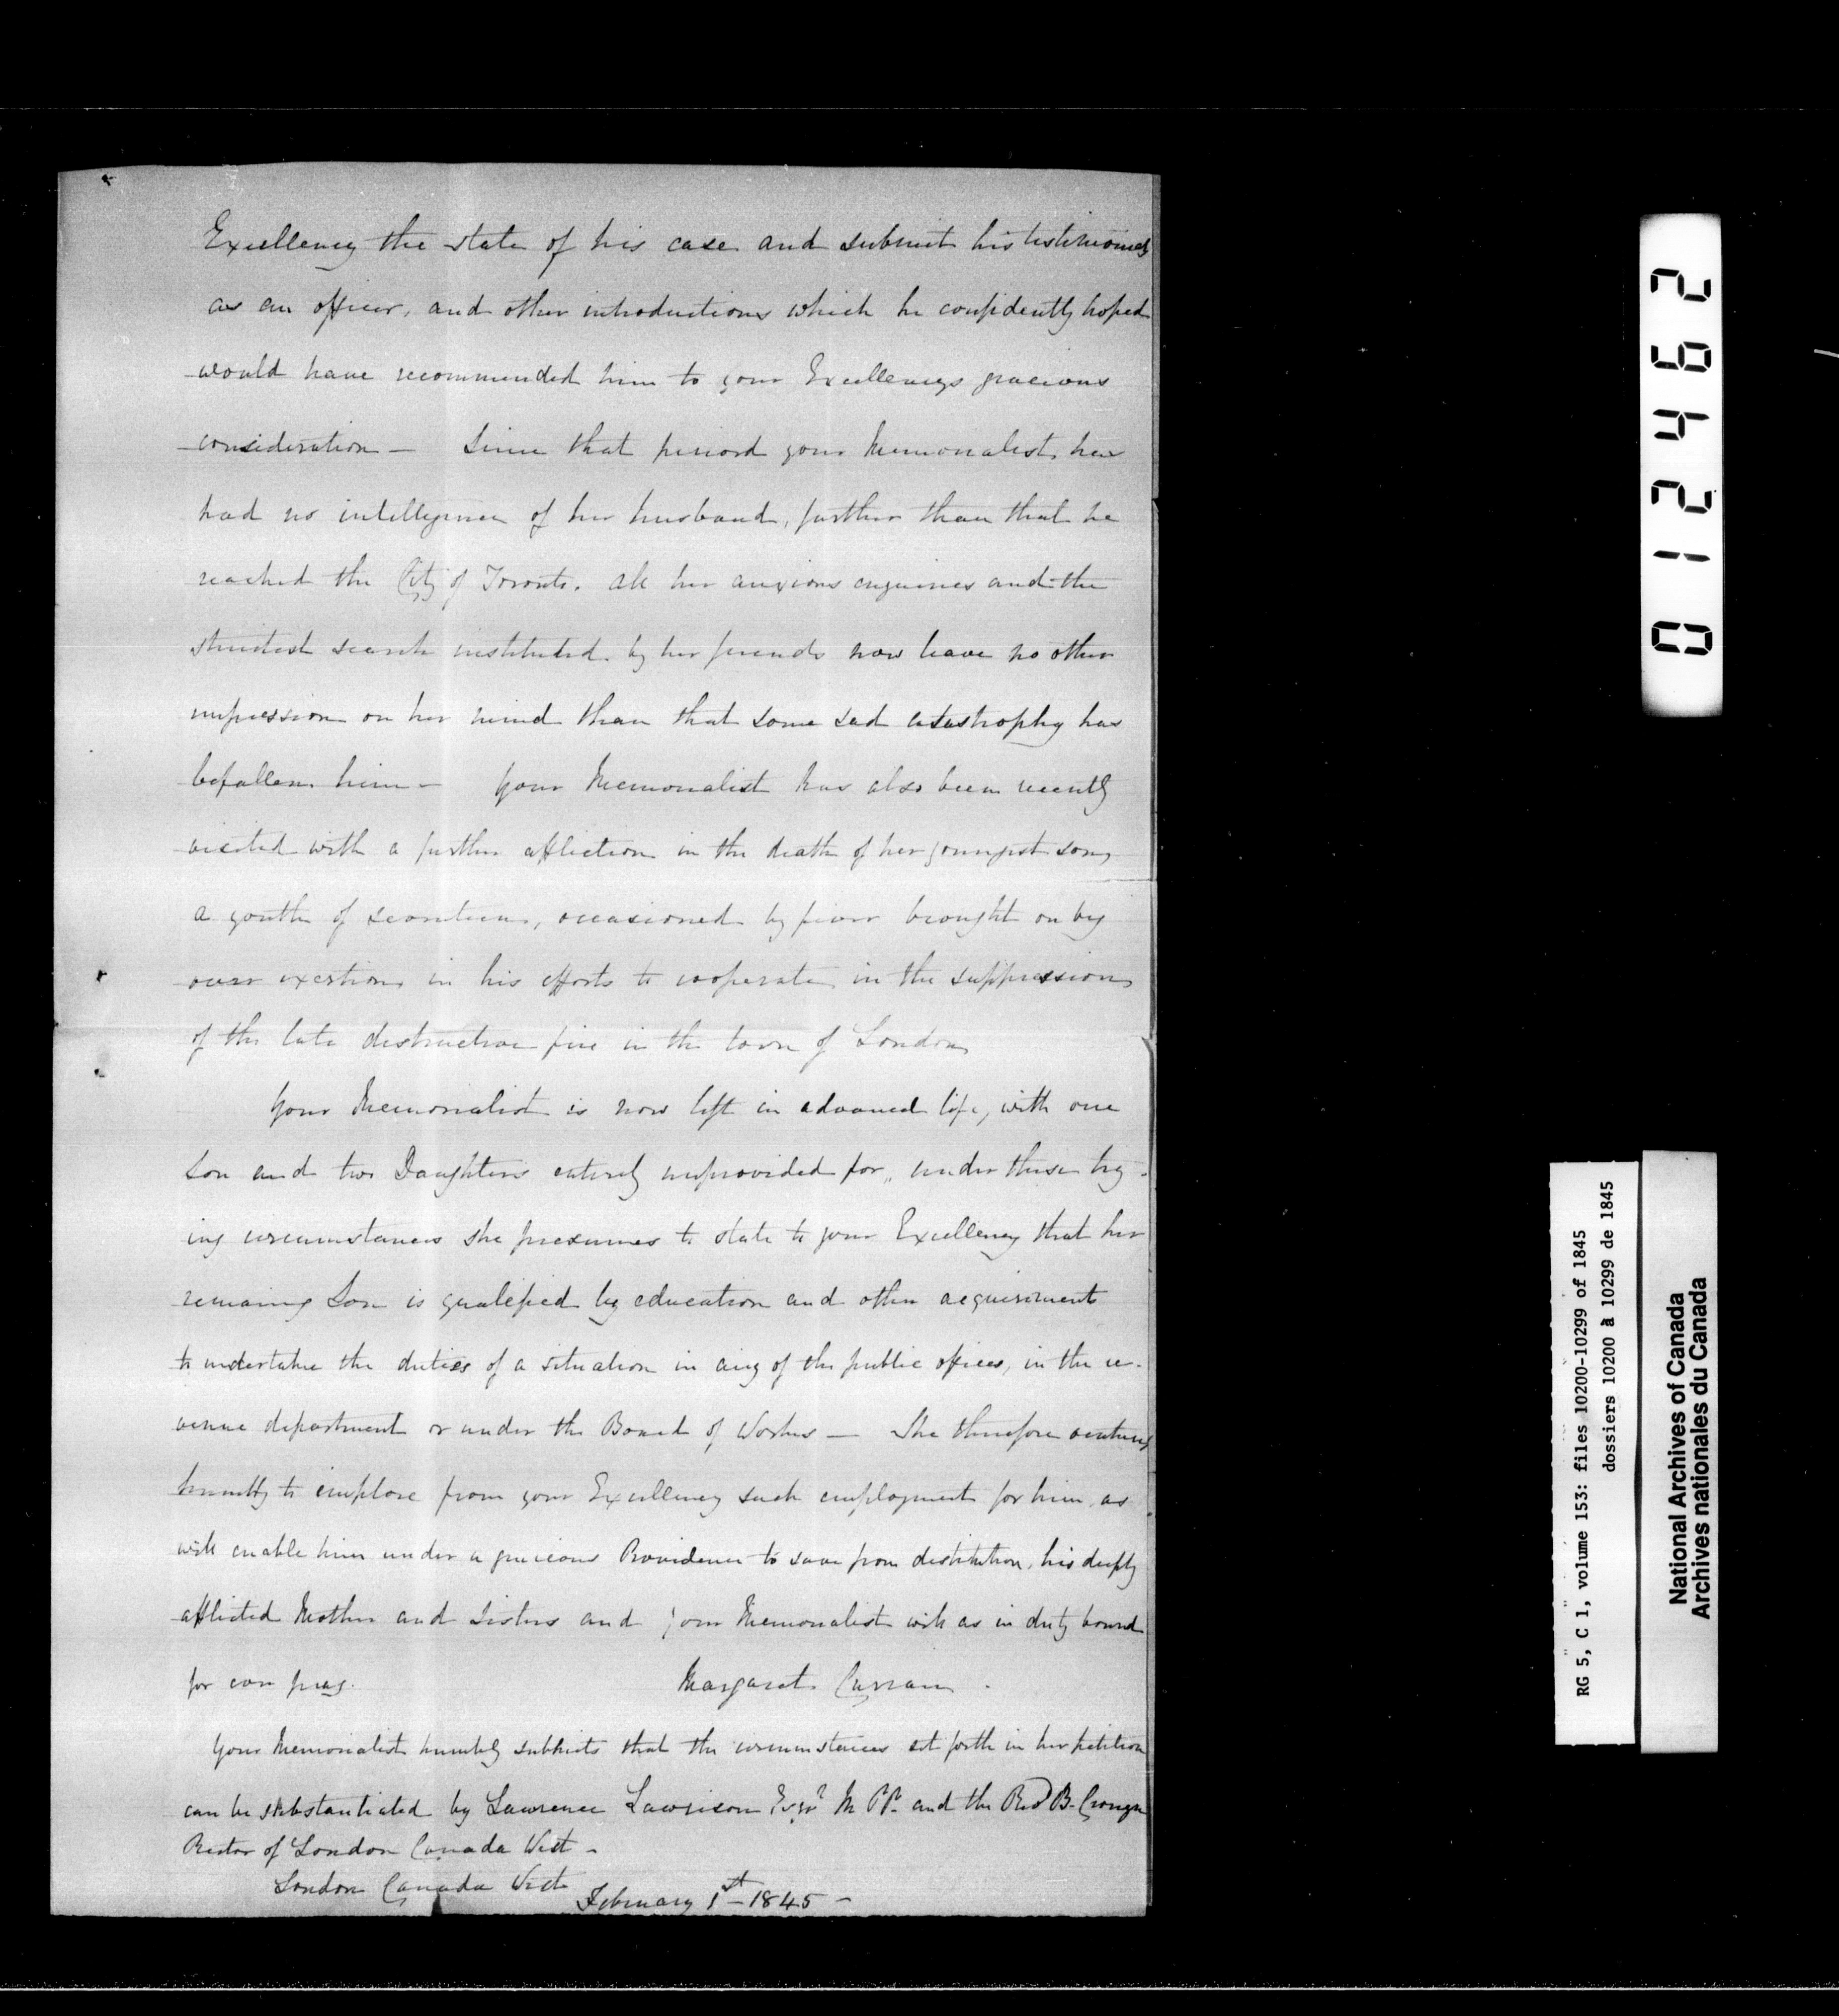 Excellency the state of his case and submit his testimonials
as an officer, and other introductions which he confidently hoped
would have recommended him to your Excellencys gracious
consideration — Since that period your Memorialist has
had no intelligence of her husband, further than that he
reached the City of Toronto. All her anxious enquiries and the
strictest search instituted by her friends now leave no other
impression on her mind than that some sad catastrophy has
befallen him — Your Memorialist has also been recently
visited with a further affliction in the death of her youngest son,
a youth of seventeen, occasioned by fever brought on by
over exertion in his efforts to cooperate in the suppression
of the late destructive fire in the town of London
Your Memorialist is now left in advanced life, with one
Son and two Daughters entirely unprovided for, under these try-
ing circumstances she presumes to state to your Excellency that her
remaing Son is qualified by education and other acquirements
to undertake the duties of a situation in any of the public offices, in the re-
venue department or under the Board of Works — She therefore ventures
humbly to implore from your Excellency such employment for him, as
will enable him under a gracious Providence to save from destitution, his deeply
afflicted Mother and Sisters and your Memorialist will as in duty bound
for ever pray.
Margaret Curran.
Your Memorialist humbly submits that the circumstances set forth in her petition
can be substantiated by Lawrence Lawrison Esqr M.P.P. and the Revd B. Cronyn
Rector of London Canada West -
London Canada West
February 1st - 1845 -
012462
RG 5, C 1, volume 153: files 10200-10299 of 1845
dossiers 10200 à 10299 de 1845
National Archives of Canada
Archives nationales du Canada